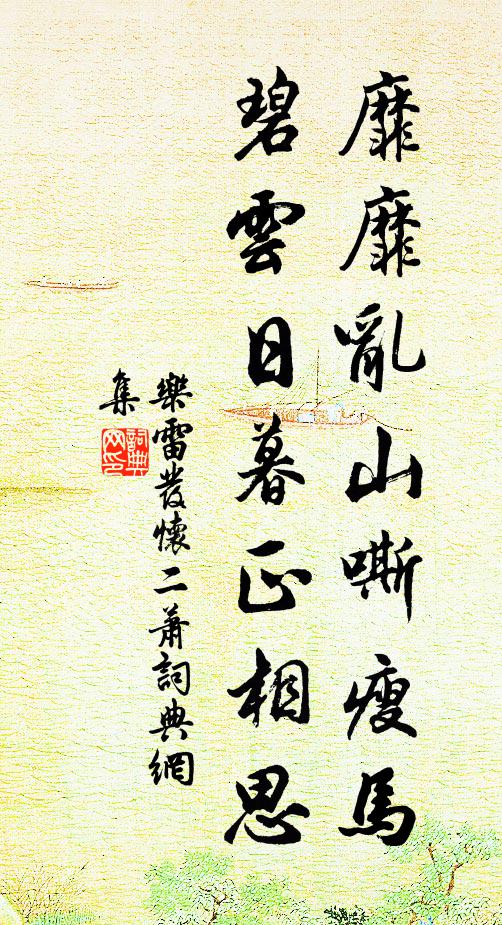 靡靡亂山嘶瘦馬
碧雲日暮正相思
樂雷發懷二蕭詞典網
集
詞典網印